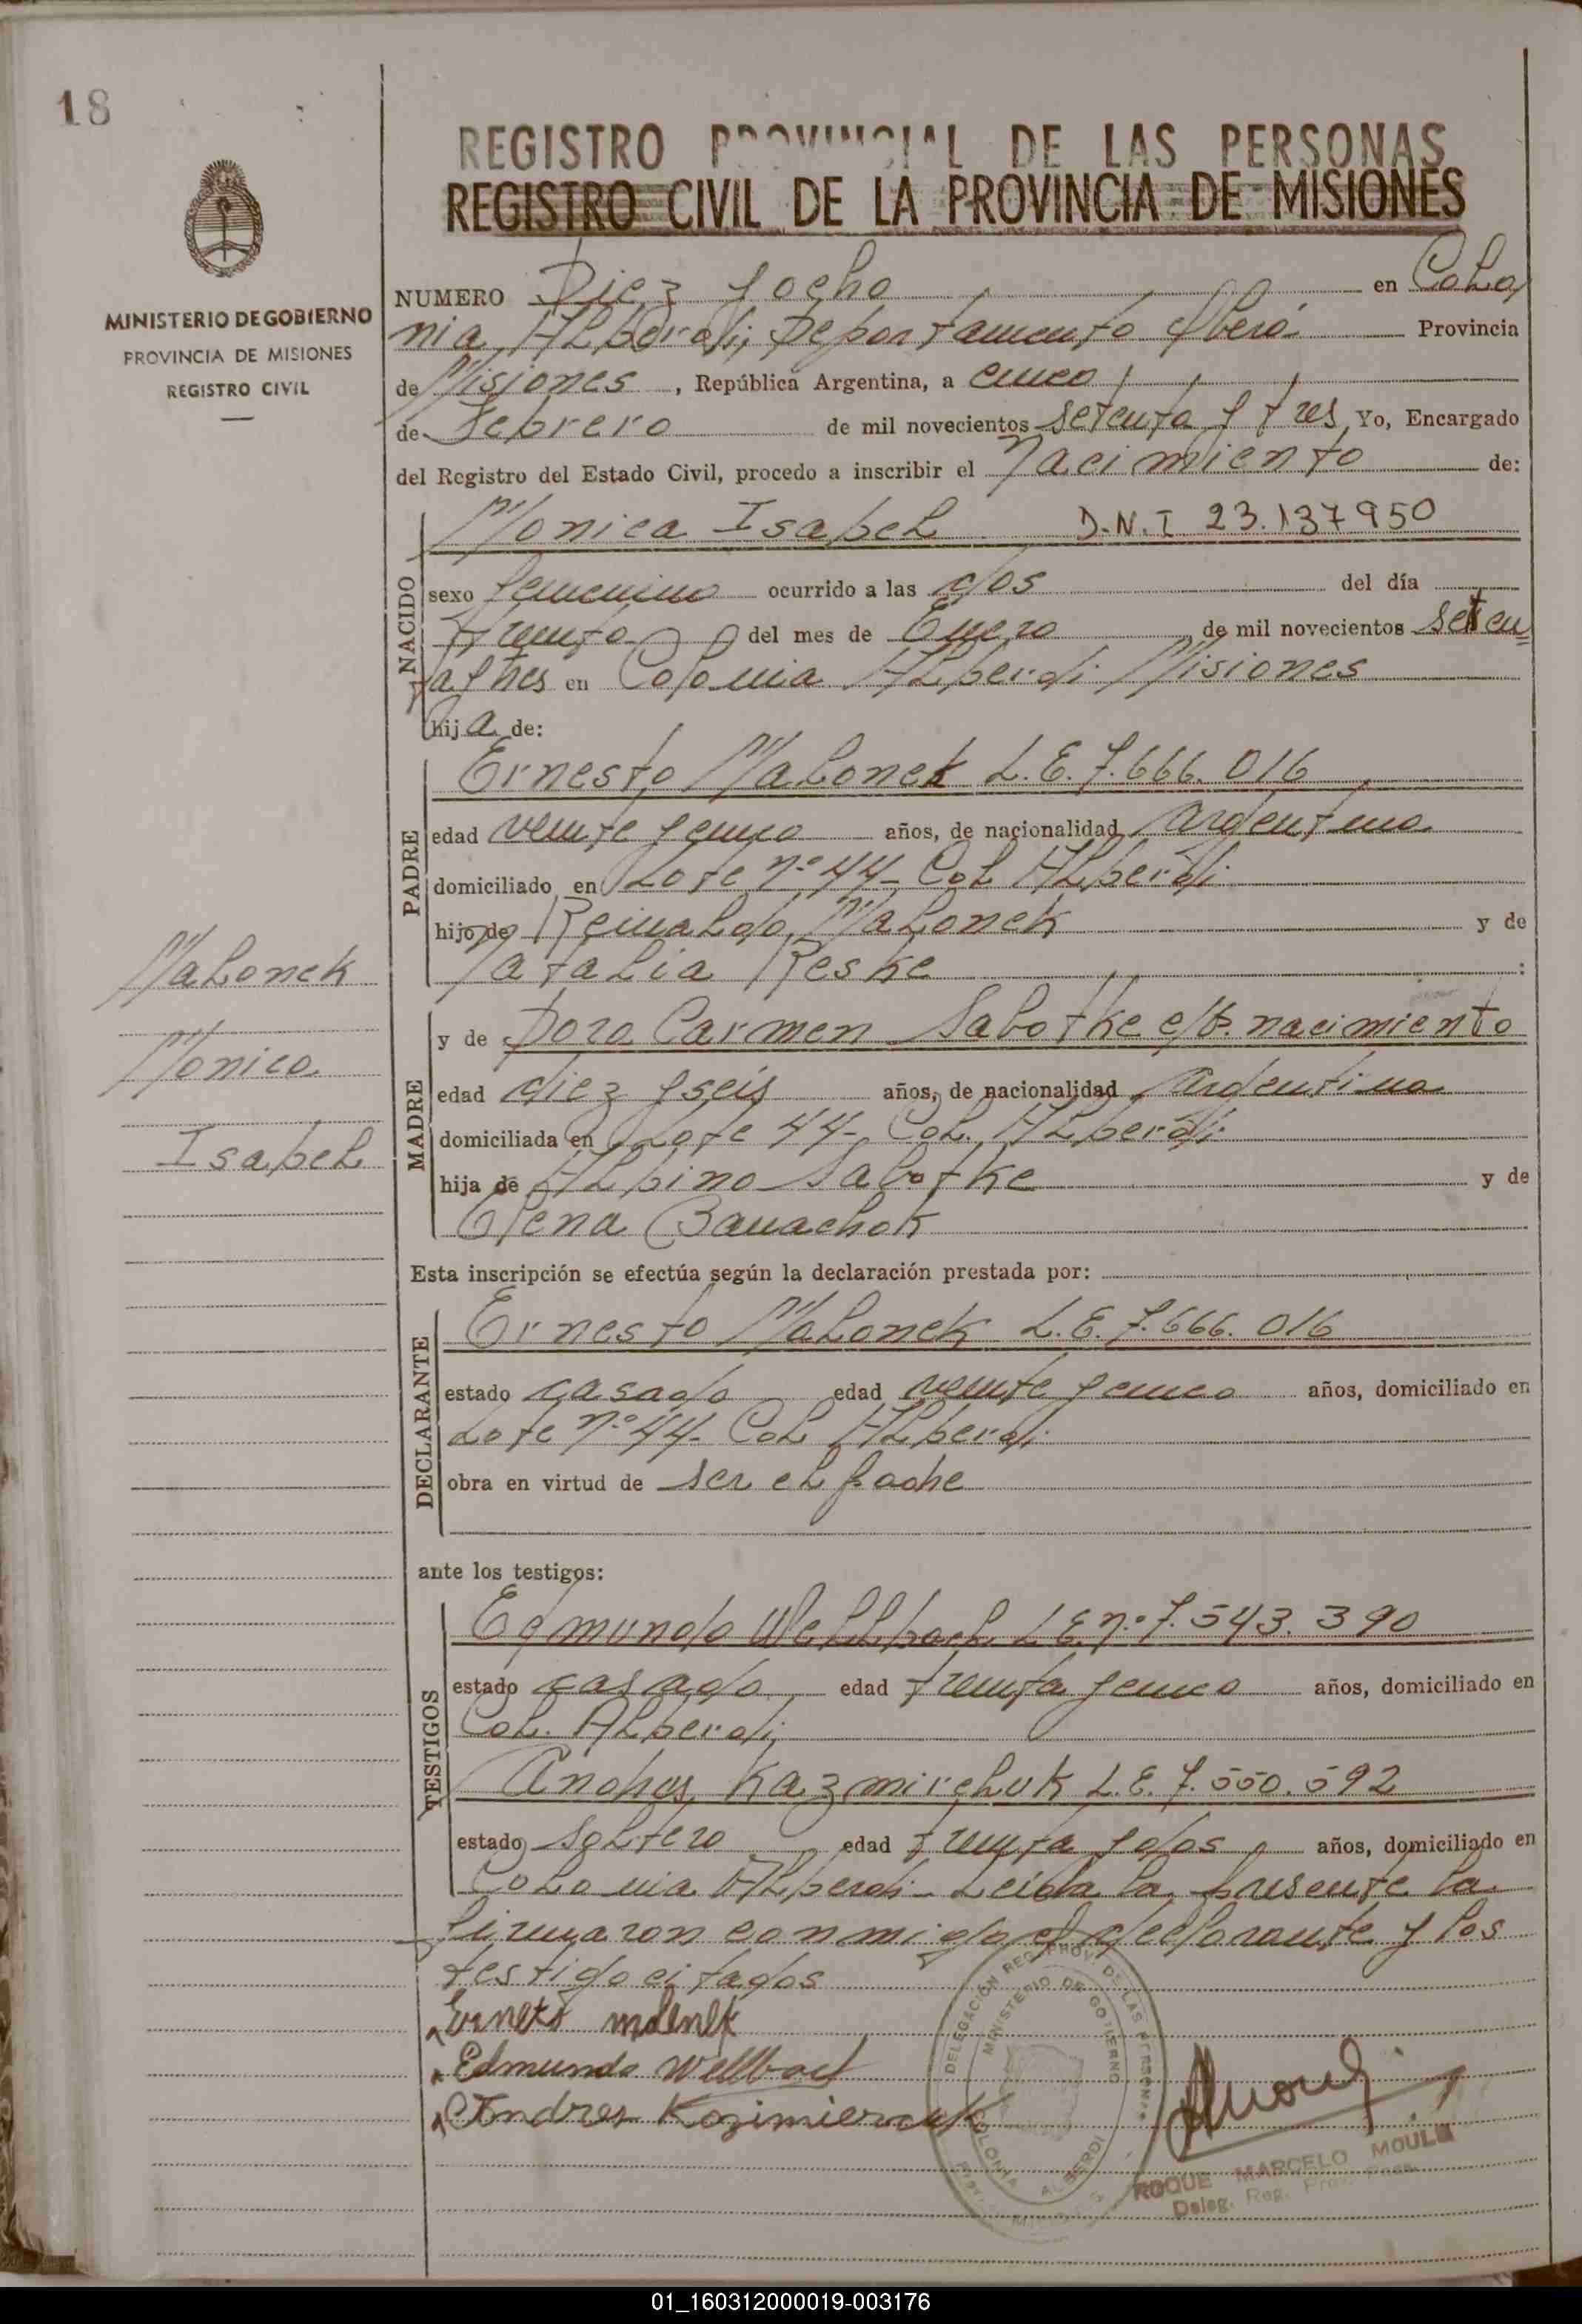 18
REGISTRO PROVINCIAL DE LAS PERSONAS
REGISTRO CIVIL DE LA PROVINCIA DE MISIONES
MINISTERIO DE GOBIERNO
PROVINCIA DE MISIONES
REGISTRO CIVIL
NUMERO Diez y ocho en Colo
nia Alberdi; Departamento Oberá Provincia
de Misiones, República Argentina, a cinco
de Febrero de mil novecientos setenta y tres Yo, Encargado
del Registro del Estado Civil, procedo a inscribir el Nacimiento de:
NACIDO
Monica Isabel D.N.I 23.137950
sexo femenino ocurrido a las dos del día
treinta del mes de Enero de mil novecientos seten=
ta y tres en Colonia Alberdi Misiones
hija de:
PADRE
Ernesto Malonek L.E. 7.666.016
edad veinte y cinco años, de nacionalidad argentino
domiciliado en Lote nº 44- Col Alberdi
hijo de Reinaldo Malonek y de
Natalia Reske :
Malonek
Monica
Isabel
MADRE
y de Dora Carmen Sabotke c/t. nacimiento
edad diez y seis años, de nacionalidad argentina
domiciliada en Lote 44- Col. Alberdi
hija de Albino Sabotke y de
Olena Banachok
Esta inscripción se efectúa según la declaración prestada por:
DECLARANTE
Ernesto Malonek L.E. 7.666.016
estado casado edad veinte y cinco años, domiciliado en
Lote nº 44- Col Alberdi
obra en virtud de ser el padre
ante los testigos:
TESTIGOS
Edmundo Wellbach L.E. nº 7.543.390
estado casado edad treinta y cinco años, domiciliado en
Col. Alberdi
Andres Kazmirchuk L.E. 7.550.592
estado soltero edad treinta y dos años, domiciliado en
Colonia Alberdi- Leida la presente la
firmaron conmigo el declarante y los
testigo citados
Ernesto
Edmundo Wellbach
Andres Kozimierczuk
DELEGACIÓN REG. PROV. DE LAS PERSONAS
MINISTERIO DE GOBIERNO
COLONIA ALBERDI
ROQUE MARCELO
Deleg. Reg. Prov. Pers.
01_160312000019-003176